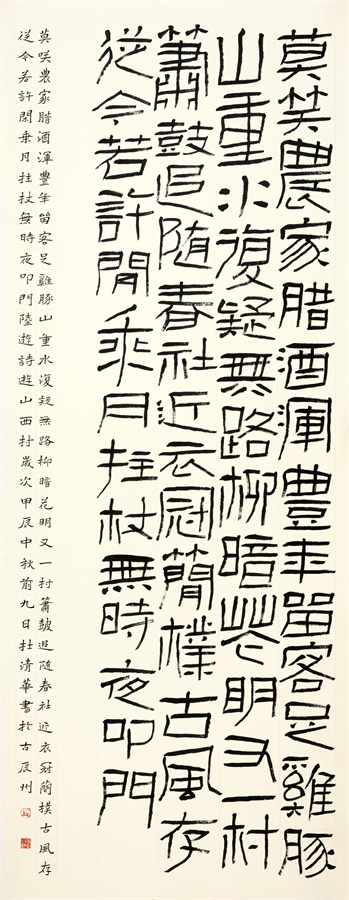 莫笑農家腊酒渾豐年留客足雞豚
山重水復疑無路柳暗花明又一村
簫鼓追随春社近衣冠簡樸古風存
從今若許閒乘月拄杖無時夜叩門
莫咲農家腊酒渾豐年留客足雞豚山重水復疑無路柳暗花明又一村簫鼓追随春社近衣冠簡樸古風存
從今若許閑乘月拄杖無時夜叩門陸遊詩遊山西村歲次甲辰中秋前九日杜清華書於古辰州